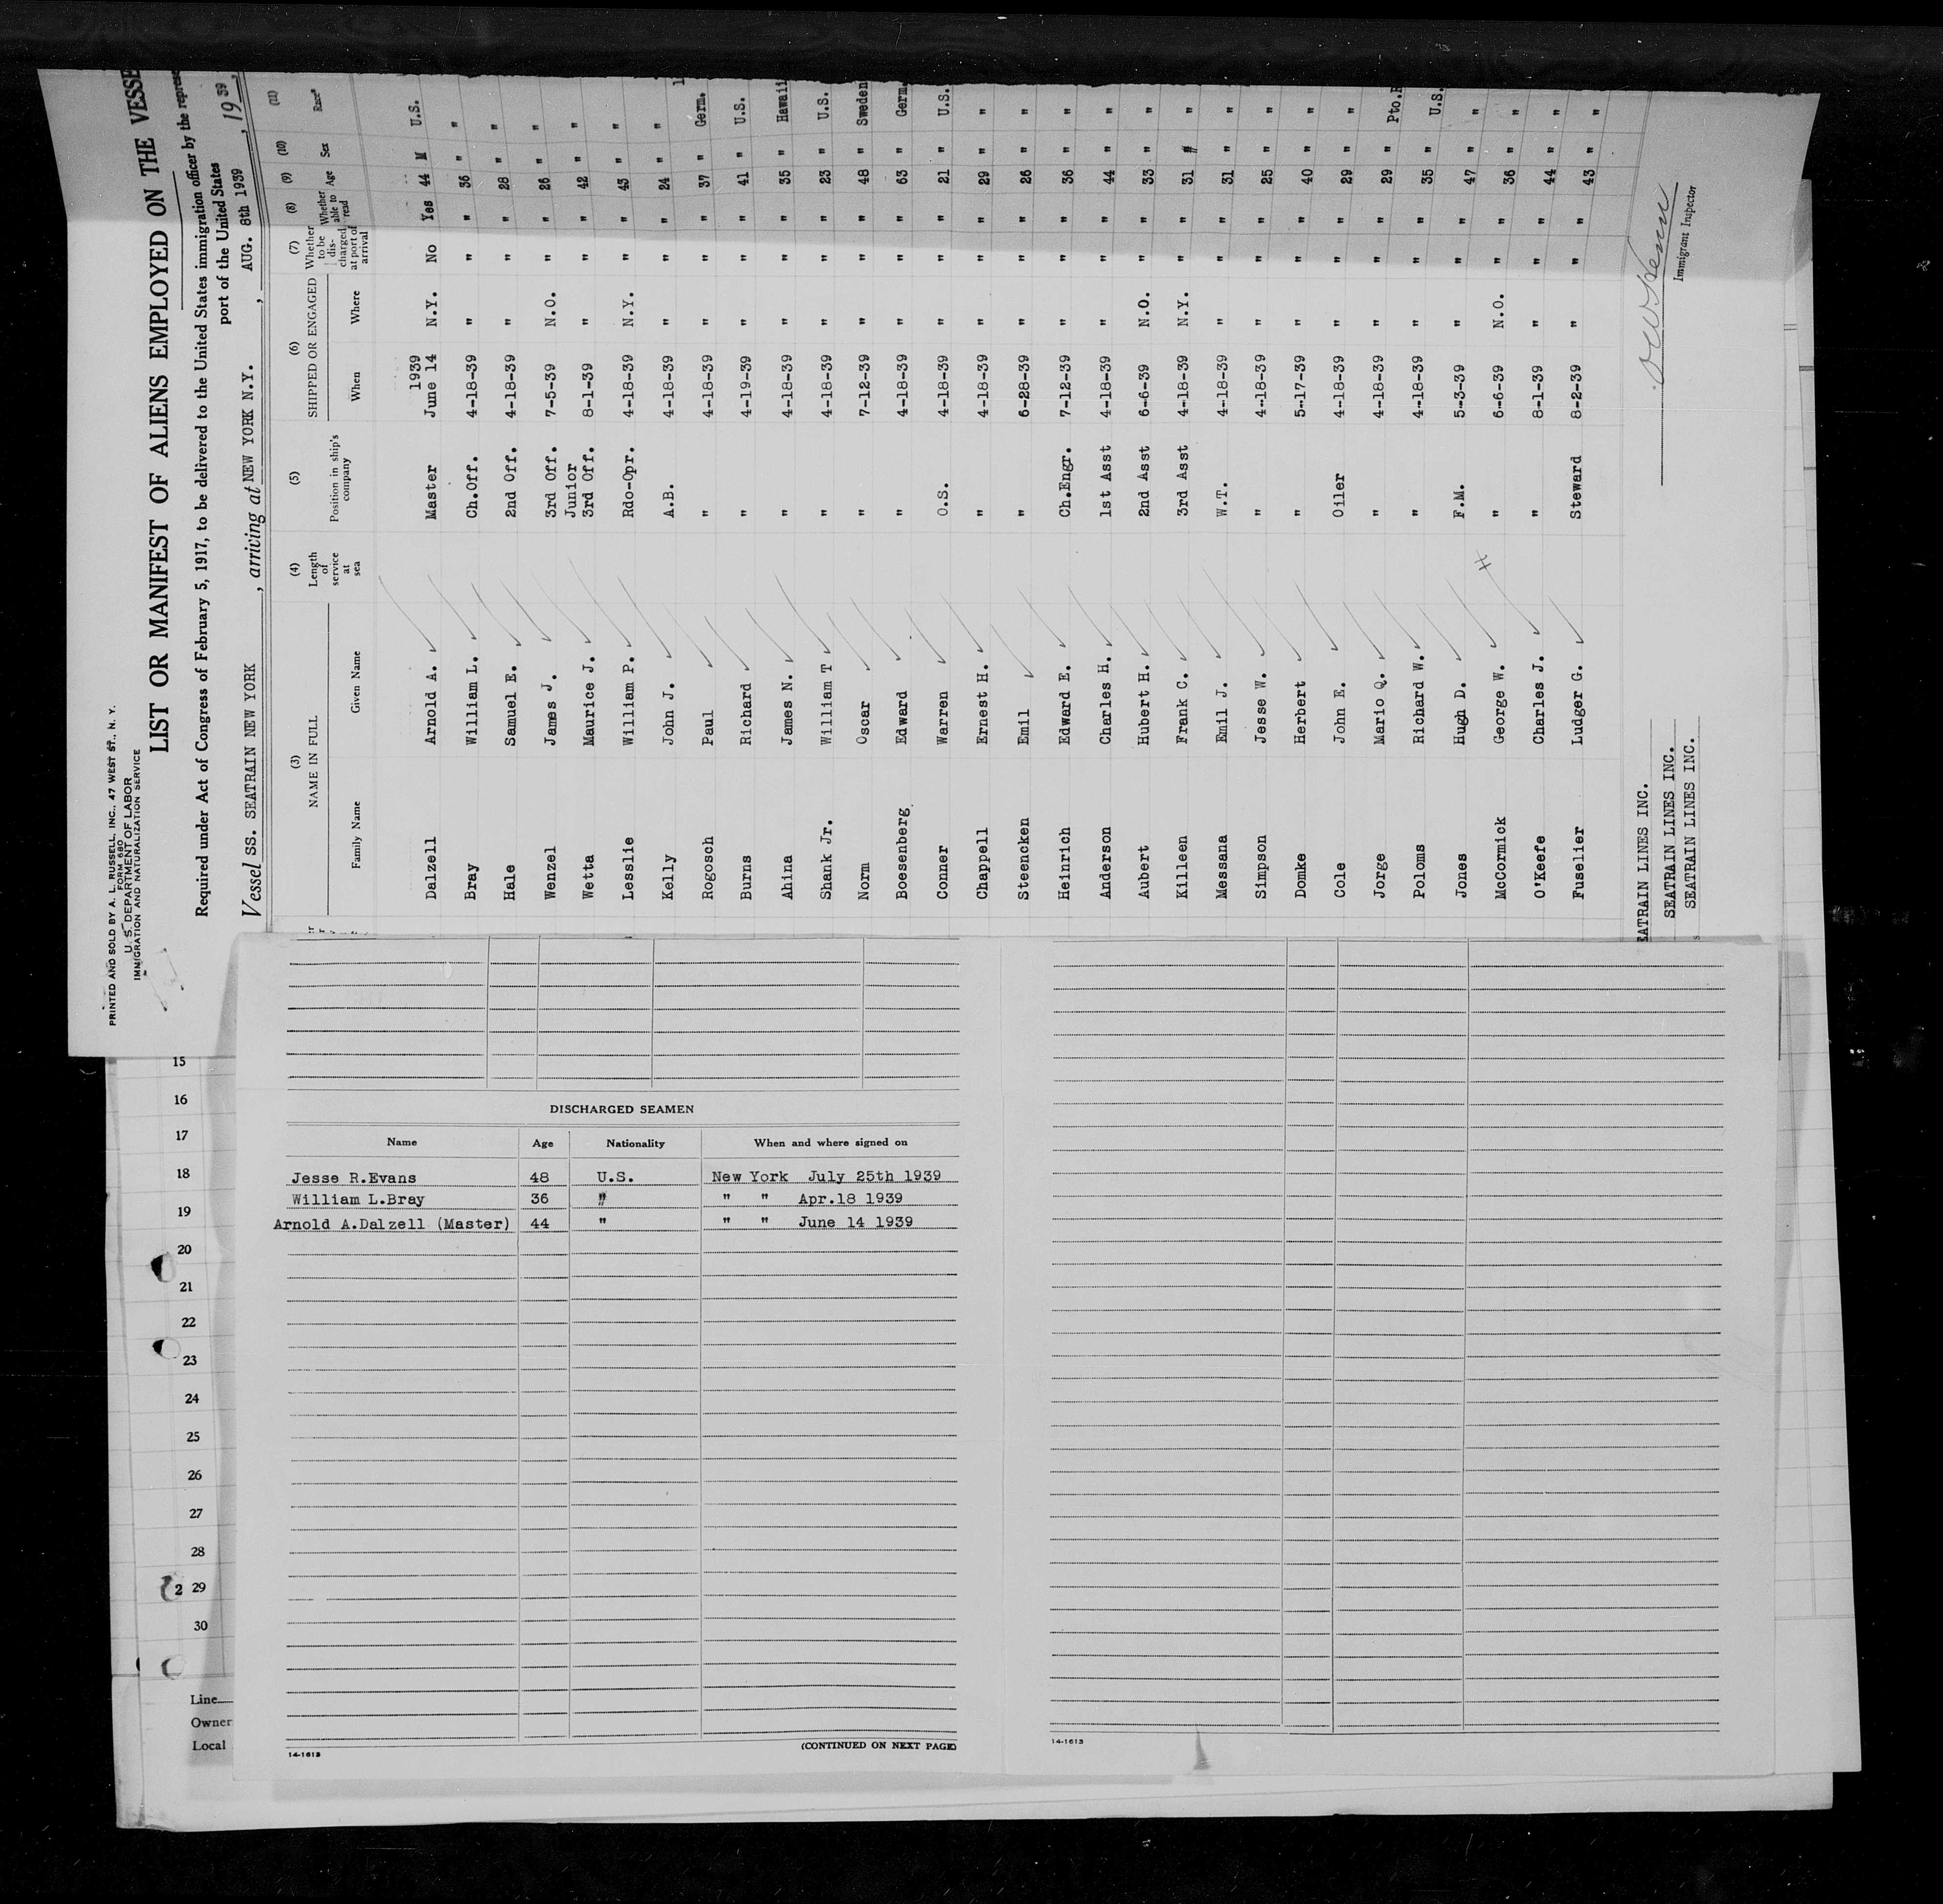 PRINTED AND SOLD BY A. L. RUSSELL, INC., 47 WEST ST., N. Y.
FORM 680
U. S. DEPARTMENT OF LABOR
IMMIGRATION AND NATURALIZATION SERVICE
LIST OR MANIFEST OF ALIENS EMPLOYED ON THE VESSE
Required under Act of Congress of February 5, 1917, to be delivered to the United States immigration officer by the represe
port of the United States
Vessel SS. SEATRAIN NEW YORK, arriving at NEW YORK N.Y., AUG. 8th 1939, 1939,
(3) (4) (5) (6) (7) (8) (9) (10) (11)
NAME IN FULL Length of service at sea Position in ship's company SHIPPED OR ENGAGED Whether to be dis-charged at port of arrival Whether able to read Age Sex Race*
Family Name Given Name When Where
1939
Dalzell Arnold A. Master June 14 N.Y. No Yes 44 M U.S.
Bray William L. Ch.Off. 4-18-39 " " " 36 " "
Hale Samuel E. 2nd Off. 4-18-39 " " " 28 " "
Wenzel James J. 3rd Off. 7-5-39 N.O. " " 26 " "
Junior
Wetta Maurice J. 3rd Off. 8-1-39 " " " 42 " "
Lesslie William P. Rdo-Opr. 4-18-39 N.Y. " " 43 " "
Kelly John J. A.B. 4-18-39 " " " 24 " "
Rogosch Paul " 4-18-39 " " " 37 " Germ.
Burns Richard " 4-19-39 " " " 41 " U.S.
Ahina James N. " 4-18-39 " " " 35 " Hawaii
Shank Jr. William T " 4-18-39 " " " 23 " U.S.
Norm Oscar " 7-12-39 " " " 48 " Sweden
Boesenberg Edward " 4-18-39 " " " 63 " Germ.
Conner Warren O.S. 4-18-39 " " " 21 " U.S.
Chappell Ernest H. " 4-18-39 " " " 29 " "
Steencken Emil " 6-28-39 " " " 26 " "
Heinrich Edward E. Ch.Engr. 7-12-39 " " " 36 " "
Anderson Charles H. 1st Asst 4-18-39 " " " 44 " "
Aubert Hubert H. 2nd Asst 6-6-39 N.O. " " 33 " "
Killeen Frank C. 3rd Asst 4-18-39 N.Y. " " 31 " "
Messana Emil J. W.T. 4-18-39 " " " 31 " "
Simpson Jesse W. " 4-18-39 " " " 25 " "
Domke Herbert " 5-17-39 " " " 40 " "
Cole John E. Oiler 4-18-39 " " " 29 " "
Jorge Mario Q. " 4-18-39 " " " 29 " Pto.R
Poloms Richard W. " 4-18-39 " " " 35 " U.S.
Jones Hugh D. F.M. 5-3-39 " " " 47 " "
McCormick George W. " 6-6-39 N.O. " " 36 " "
O'Keefe Charles J. " 8-1-39 " " " 44 " "
Fuselier Ludger G. Steward 8-2-39 " " " 43 " "
EATRAIN LINES INC.
SEATRAIN LINES INC.
SEATRAIN LINES INC.
Immigrant Inspector
15
16
17
18
19
20
21
22
23
24
25
26
27
28
2 29
30
Line
Owner
Local
DISCHARGED SEAMEN
Name Age Nationality When and where signed on
Jesse R.Evans 48 U.S. New York July 25th 1939
William L.Bray 36 " " " Apr.18 1939
Arnold A.Dalzell (Master) 44 " " " June 14 1939
14-1613 (CONTINUED ON NEXT PAGE)
14-1613